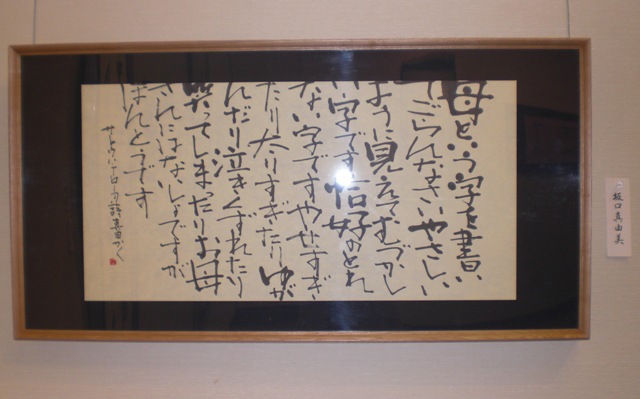 母という字を書い
てごらんなさいやさしい
ように見えてむづかし
い字です恰好のとれ
ない字ですやせすぎ
たり太りすぎたりゆが
んだり泣きくずれたり
笑ってしまったりお母
さんにはないしょですが
ほんとうです
サトウハチローの詩 かく
口真由美